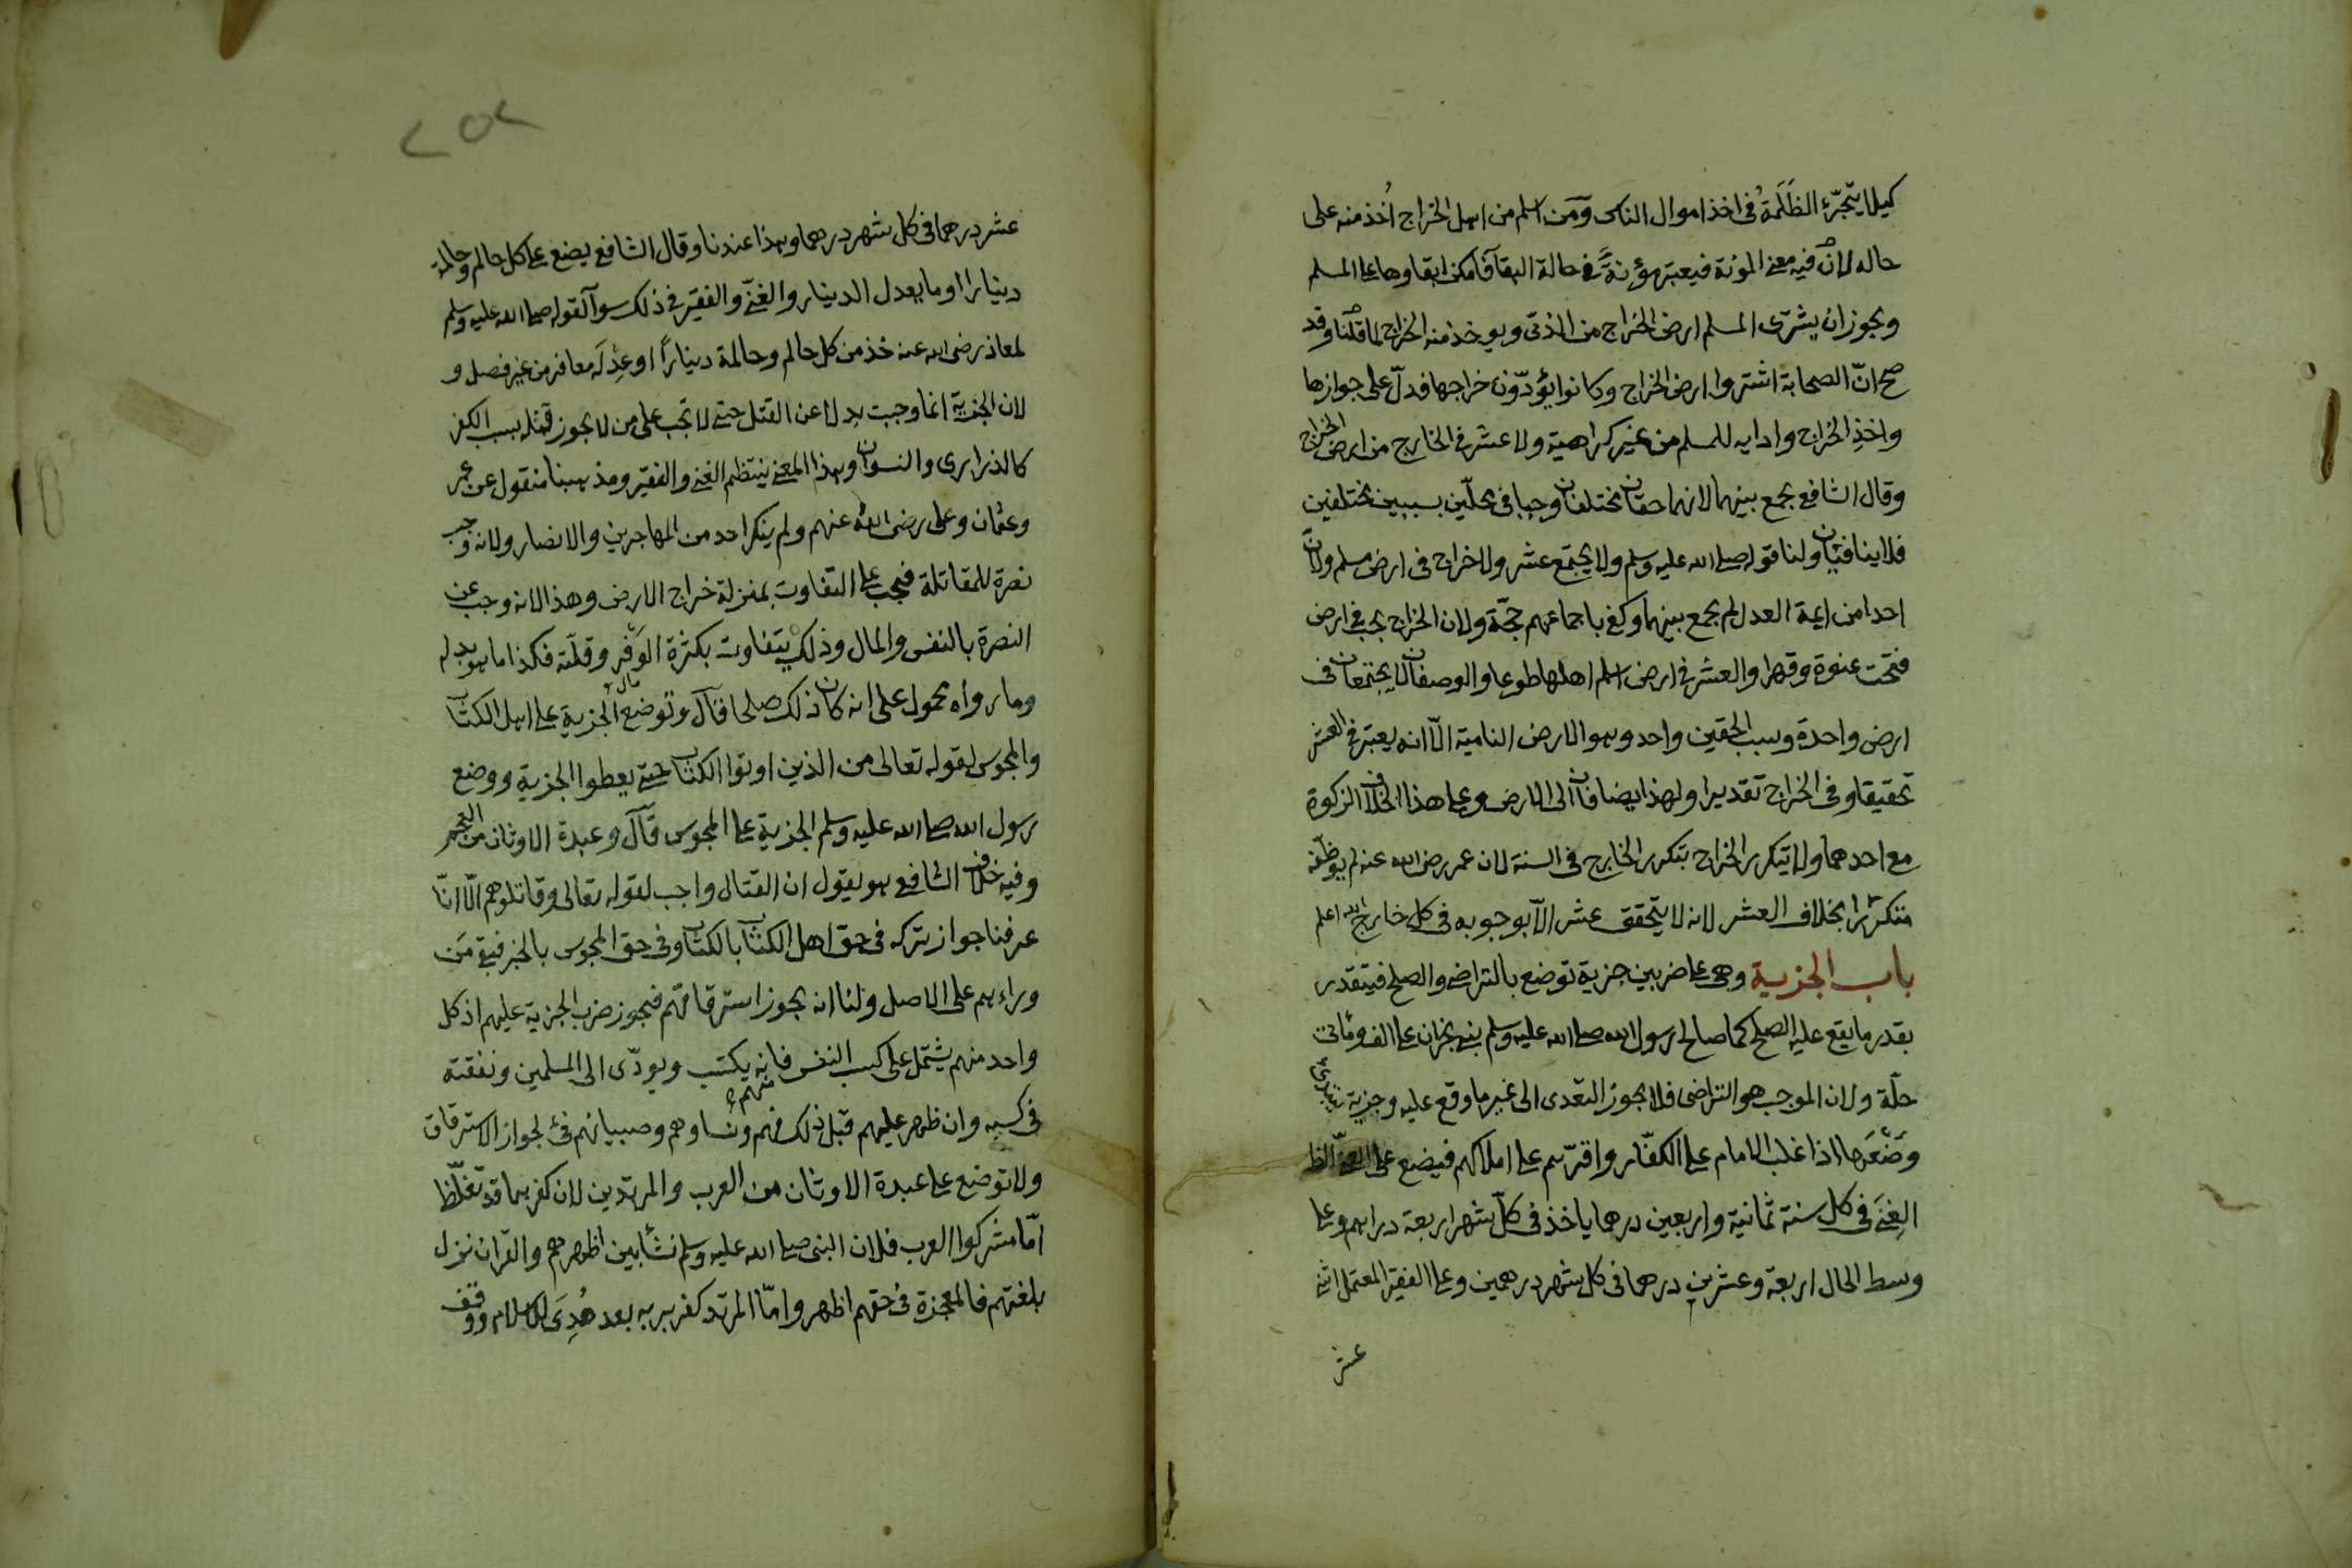 كيلا يتجرّء الظَلَمة في اخذ اموال الناس ومَن اسلم من اهل الخراج اُخذ منه على
حاله لان فيه معنى المؤنة فيعتبر مؤنةً في حالة البقآ فامكن ابقاوها على المسلم
ويجوز ان يشترى المسلم ارض الخراج من الذمّى ويوخذ منه الخراج لما قلنا وقد
صح انّ الصحابة اشتروا ارض الخراج وكانوا يؤدّون خراجها فدلّ على جوازها
واخذِ الخراج وادايه للمسلم من غير كراهية ولا عشر في الخارج من ارض الخراج
وقال الشافعى يجمع بينهما لانهما حقان مختلفان وجبا في محلّين بسببين مختلفين
فلا ينافيان ولنا قوله صلى الله عليه وسلم ولا يجتمع عشر ولا خراج في ارض مسلم ولان
احدا من ايمة العدل لم يجمع بينهما وكفى باجماعهم حجّة ولان الخراج يجب في ارض
فتحت عنوة وقهرا والعشر في ارض اسلم اهلها طوعا والوصفان لا يجتمعان في
ارض واحدة وسبب الحقين واحد وهو الارض النامية الّا انه يعتبر في العشر
تحقيقا وفى الخراج تقديرا ولهذا يضافان الى الارض وعلى هذا الخلاف الزكوة
مع احدهما ولا يتكرر الخراج بتكرر الخارج في السنة لان عمر رضى الله عنه لم يوظّفه
متكررا بخلاف العشر لانه لا يتحقق عشر الّا بوجوبه في كل خارج الله اعلم
باب الجزية وهى على ضربين جزية توضع بالتراضى والصلح فيتقدر
بقدر ما يقع عليه الصلح كما صالح رسول الله صلى الله عليه وسلم بنى نجران على الف ومائتى
حلّة ولان الموجب هو التراضى فلا يجوز التعدى الى غير ما وقع عليه وجزية يبتدئ
وَضْعَها اذا غلب الامام على الكفّار واقرّهم على املاكهم فيضع على الغنىّ الظا
الغِنَى في كل سنة ثمانية واربعين درهما ياخذ في كلّ شهر اربعة دراهم وعلى
وسط الحال اربعة وعشرين درهما في كل شهر درهمين وعلى الفقير المعتمل اثنى
عشر
٢٥٢
عشر درهما في كل شهر درهما وهذا عندنا وقال الشافعى يضع على كل حالم وحالمة
دينارا او ما يعدل الدينار والغنىّ والفقير في ذلك سوآ لقوله صلى الله عليه وسلم
لمعاذ رضى الله عنه خذ من كل حالم وحالمة ديناراً او عِدْلَه معافر من غير فصل و
لان الجزية انما وجبت بدلا عن القتل حتى لا تجب على من لا يجوز قتله بسبب الكفر
كالذرارى والنسوان وهذا المعنى ينتظم الغنى والفقير ومذهبنا منقول عن عمر
وعثمان وعلى رضى الله عنهم ولم ينكر احد من المهاجرين والانصار ولانه وجب
نصرة للمقاتلة فيجب على التفاوت بمنزلة خراج الارض وهذا لانه وجب عن
النصرة بالنفس والمال وذلك يتفاوت بكثرة الوَفْر وقلّته فكذا ما هو بدله
وما رواه محمول على انه كان ذلك صلحا قال وتوضع الجزية على اهل الكتاب
والمجوس لقوله تعالى من الذين اوتوا الكتاب حتى يعطوا الجزية ووضع
رسول الله صلى الله عليه وسلم الجزية على المجوس قال وعبدة الاوثان من العجم
وفيه خلاف الشافعى هو يقول ان القتال واجب لقوله تعالى وقاتلوهم الّا انّا
عرفنا جواز تركه في حق اهل الكتاب بالكتاب وفى حق المجوس بالخبر فبقى مَن
وراءهم على الاصل ولنا انه يجوز استرقاقهم فيجوز ضرب الجزية عليهم اذ كل
واحد منهم يشتمل على سلب النفس فانه يكتسب ويودّى الى المسلمين ونفقته
في كسبه وان ظهر عليهم قبل ذلك فهم ونساوهم وصبيانهم فئ لجواز الاسترقاق
ولا توضع على عبدة الاوثان من العرب والمرتدين لان كفرهما قد تغلّظا
امّا مشركوا العرب فلان النبى صلى الله عليه وسلم نشأ بين اظهرهم والقرآن نزل
بلغتهم فالمعجزة في حقهم اظهر وامّا المرتد كفر بربه بعد هُدِىَ للاسلام ووقف